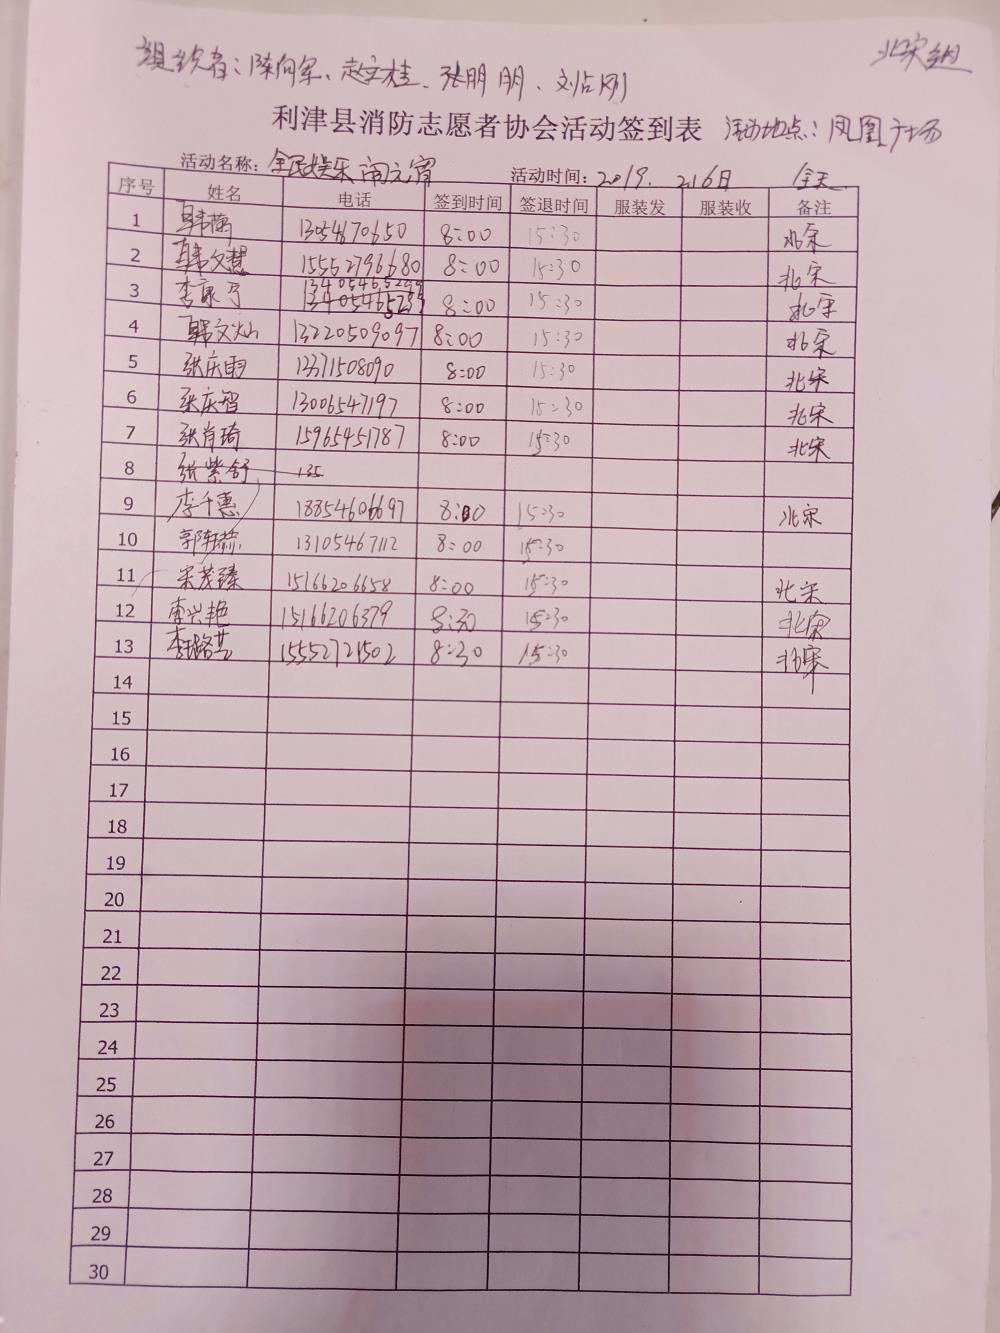 北宋组
组织者：陈向军、赵文桂、张明明、刘占刚
利津县消防志愿者协会活动签到表 活动地点：凤凰广场
活动名称：全民娱乐闹元宵 活动时间：2019. 2.16日 全天
序号 姓名 电话 签到时间 签退时间 服装发 服装收 备注
1 韩 13054670650 8:00 15:30 北宋
2 韩文慧 15552796680 8:00 15:30 北宋
3 李 13405465299 13405465299 8:00 15:30 北宋
4 韩文灿 13220509097 8:00 15:30 北宋
5 张庆雨 13371508090 8:00 15:30 北宋
6 张庆智 13006547197 8:00 15:30 北宋
7 张肖琦 15965451787 8:00 15:30 北宋
8 张紫舒 135
9 李千惠 18854606697 8:00 15:30 北宋
10 郭 13105467112 8:00 15:30
11 宋茂臻 15166206658 8:00 15:30 北宋
12 李兴艳 15166206379 8:30 15:30 北宋
13 李 15552721502 8:30 15:30 北宋
14
15
16
17
18
19
20
21
22
23
24
25
26
27
28
29
30